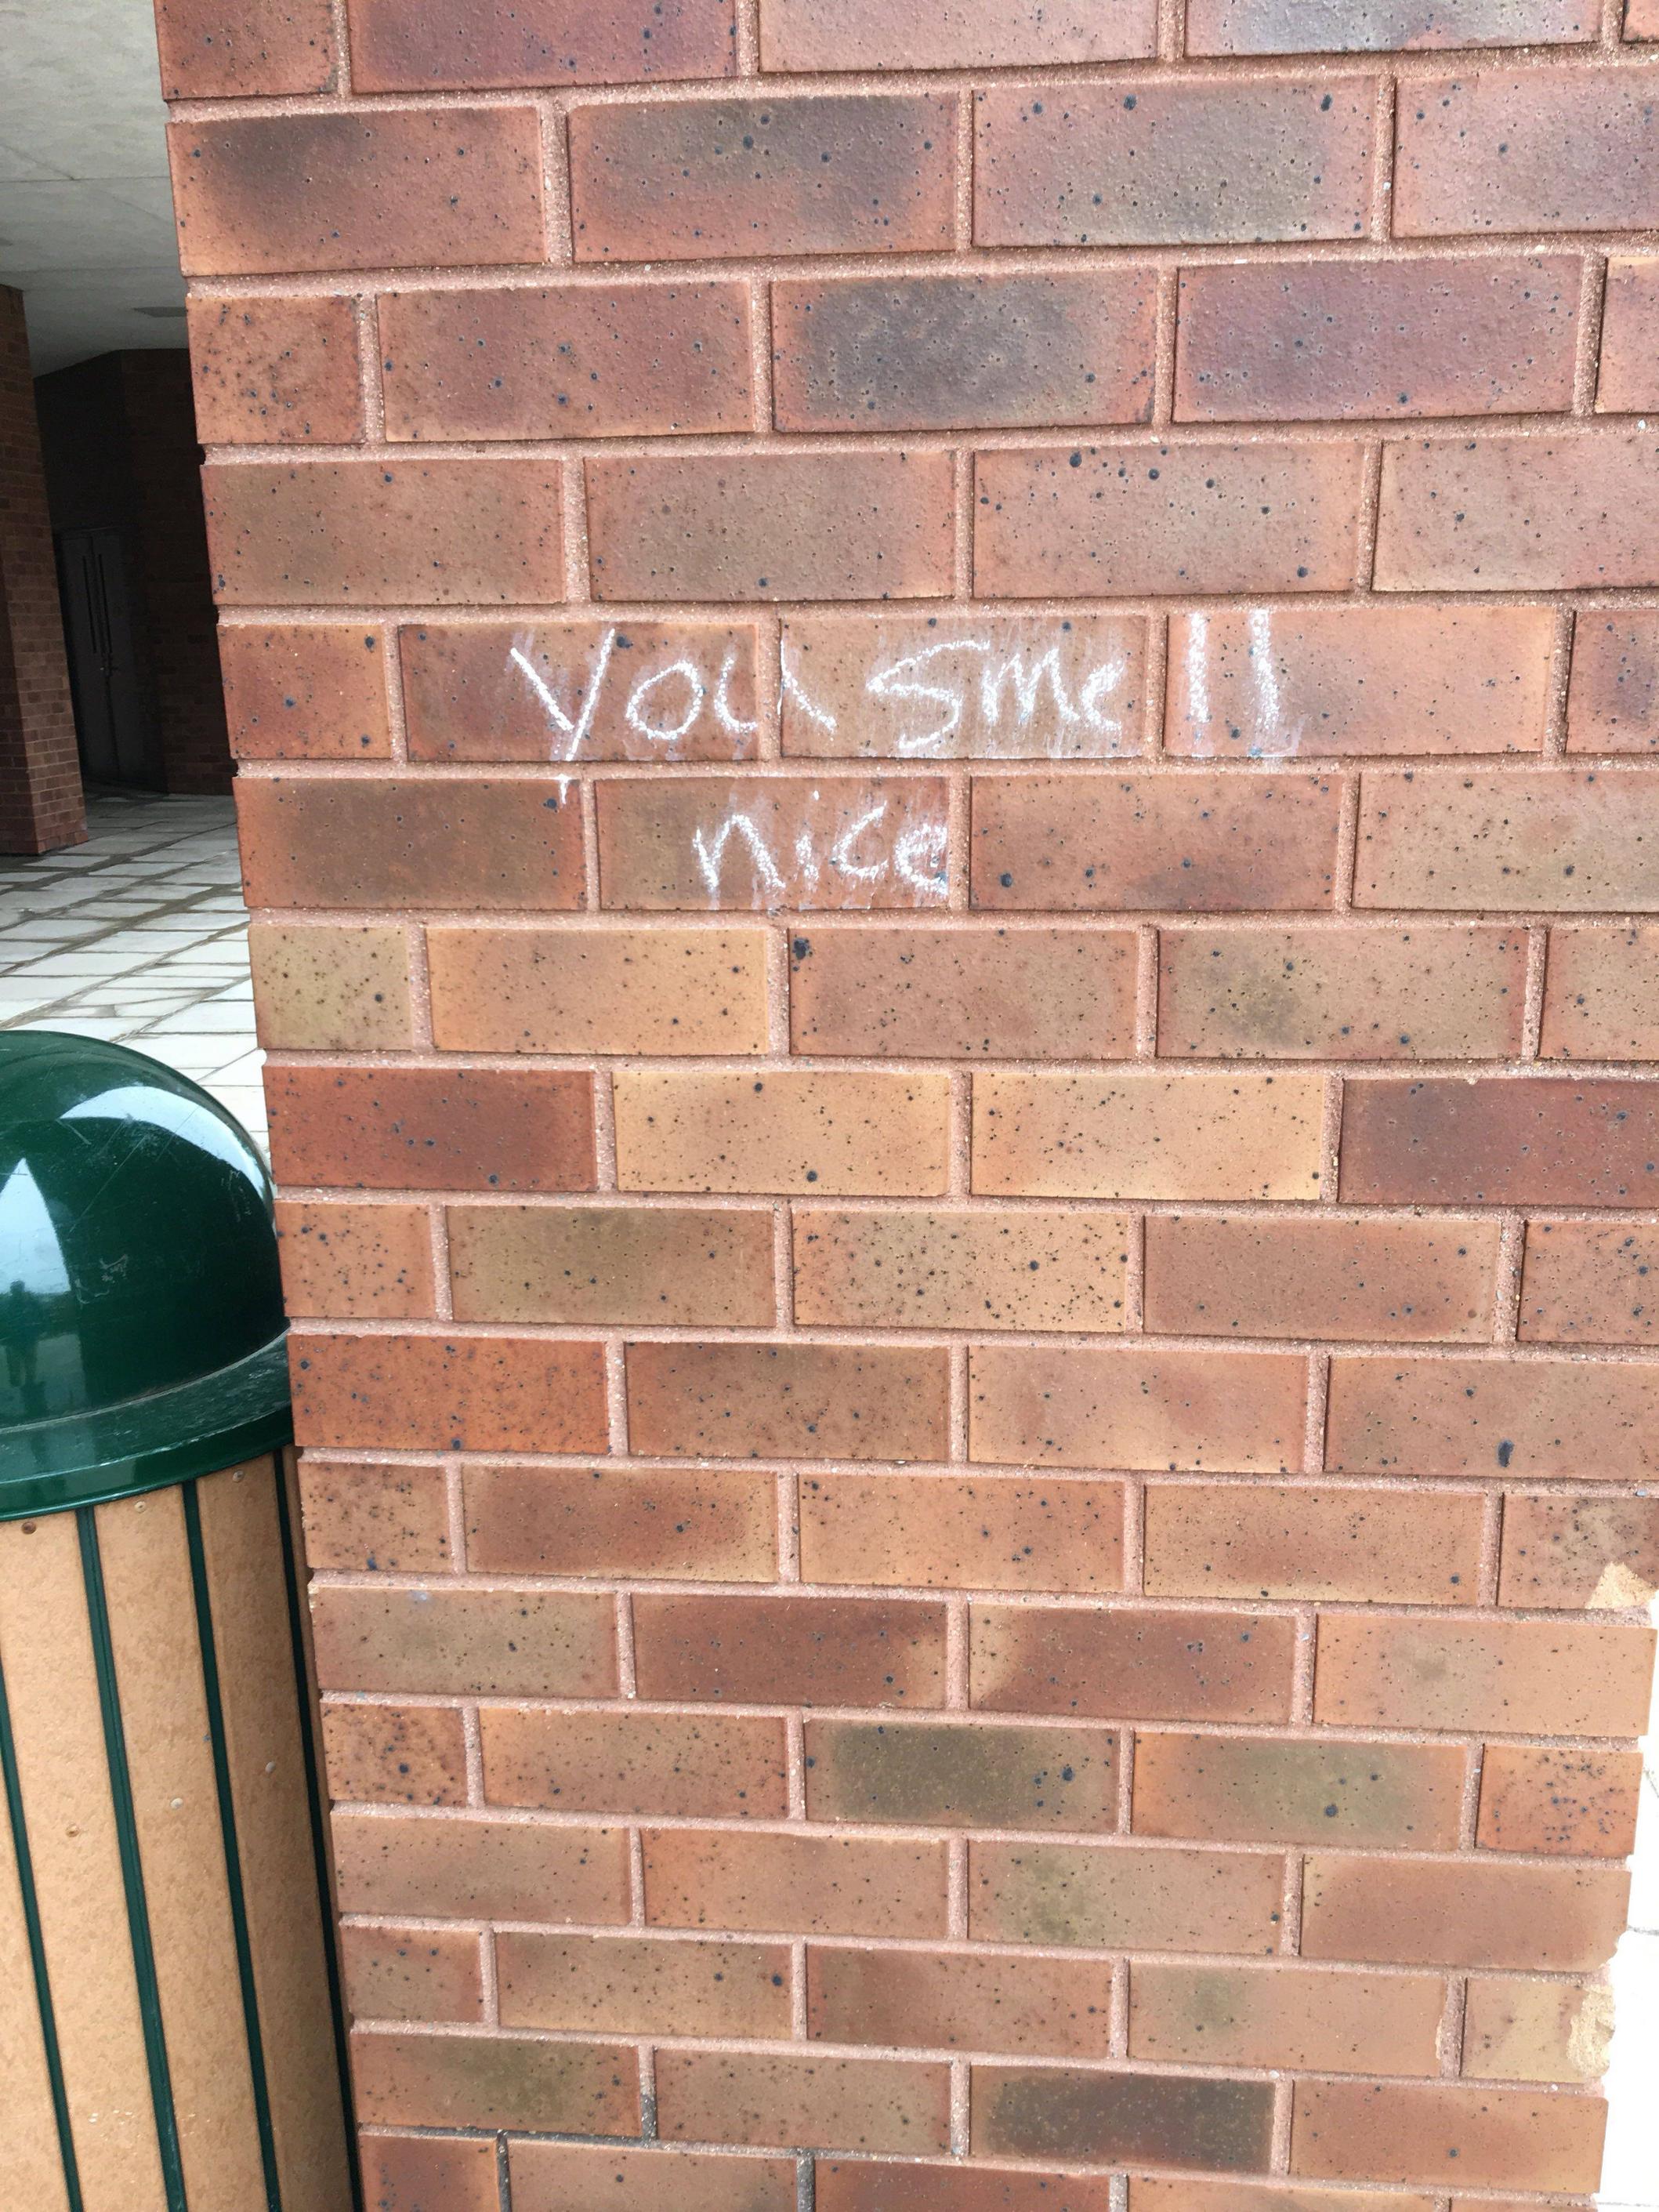 you smell
nice